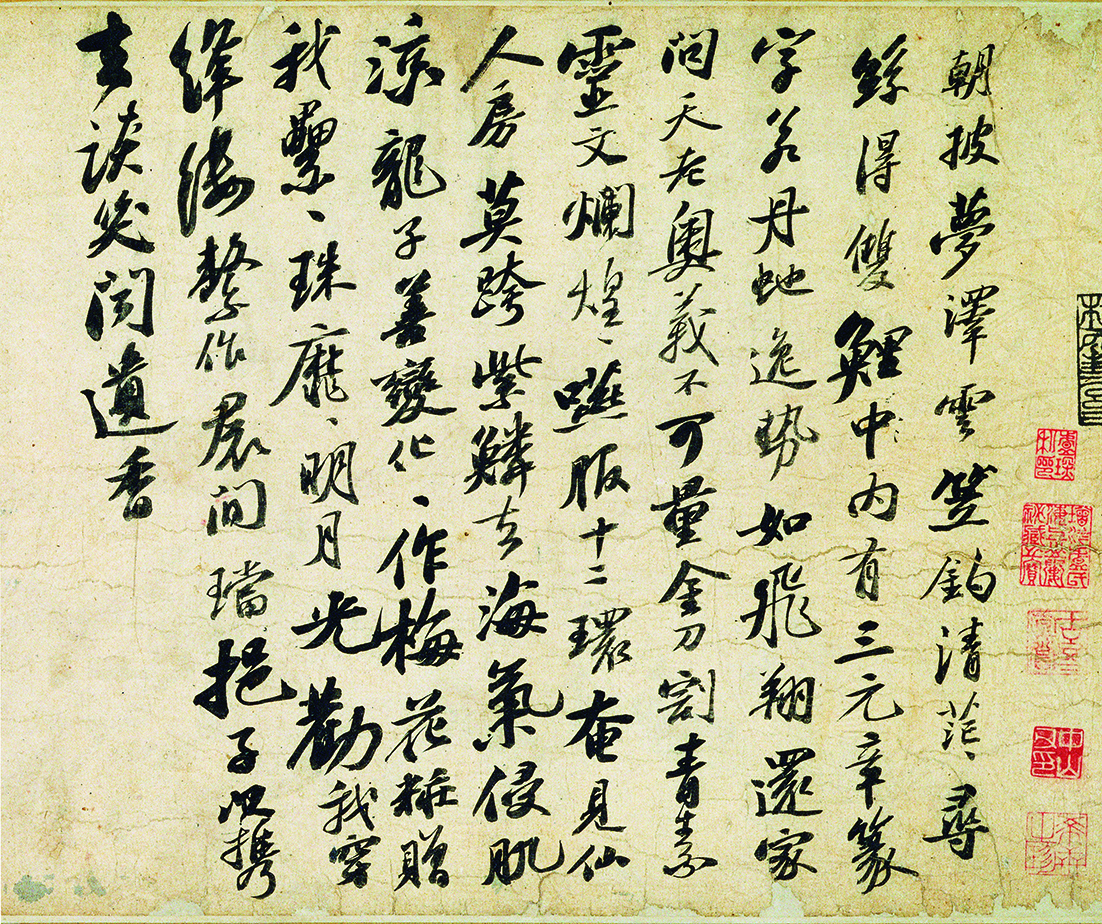 朝披夢澤雲笠釣清茫〻尋
絲得雙鯉中內有三元章篆
字若丹虵逸勢如飛翔還家
問天老奧義不可量金刀割青素
靈文爛煌〻嚥服十二環奄見仙
人房莫跨紫鱗去海氣侵肌
涼龍子善變化〻作梅花粧贈
我纍〻珠靡〻明月光勸我穿
絳縷繫作裙間璫挹子以攜
去談笑聞遺香